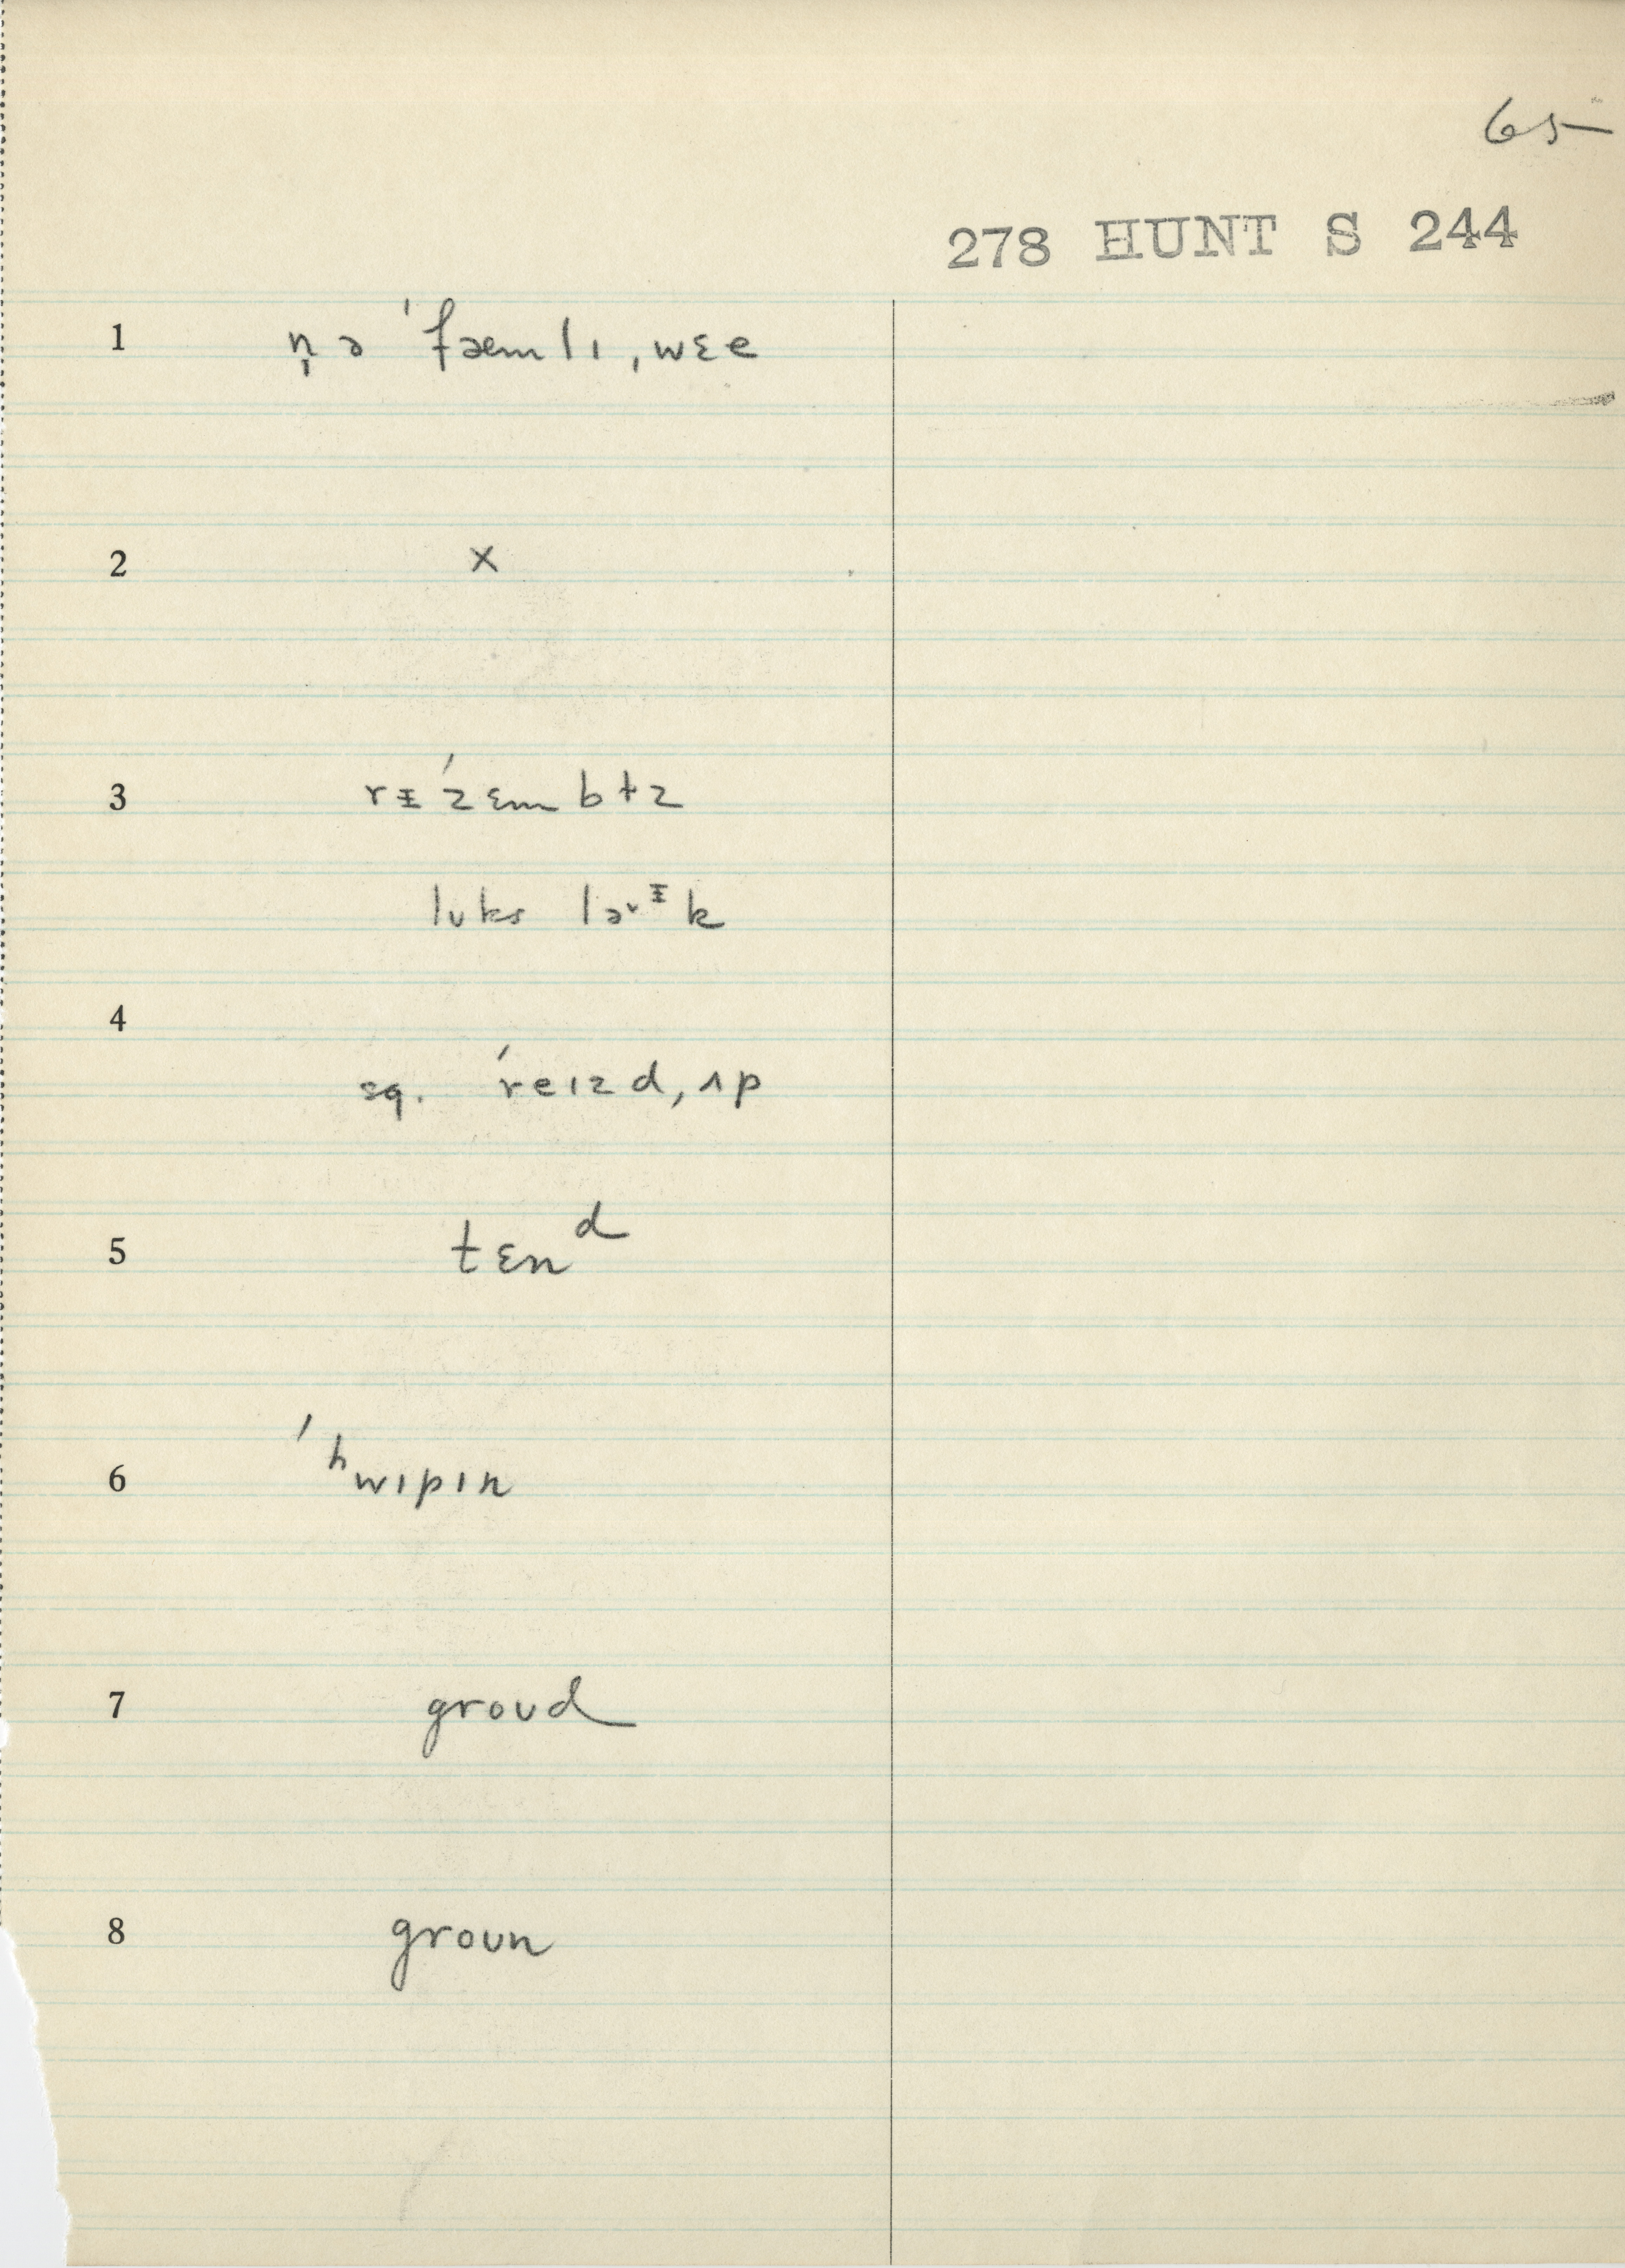 65
278 HUNT S 244
1 n̩ ə ˈfæmlɪ ˌwɛe
2 x
3 rᵻˈzɛmbɫz
lʊks ləᵛᵻk
4
sq. ˈreɪzd ˌʌp
5 tɛnᵈ
6 ˈʰwɪpɪn
7 groʊd
8 groʊn